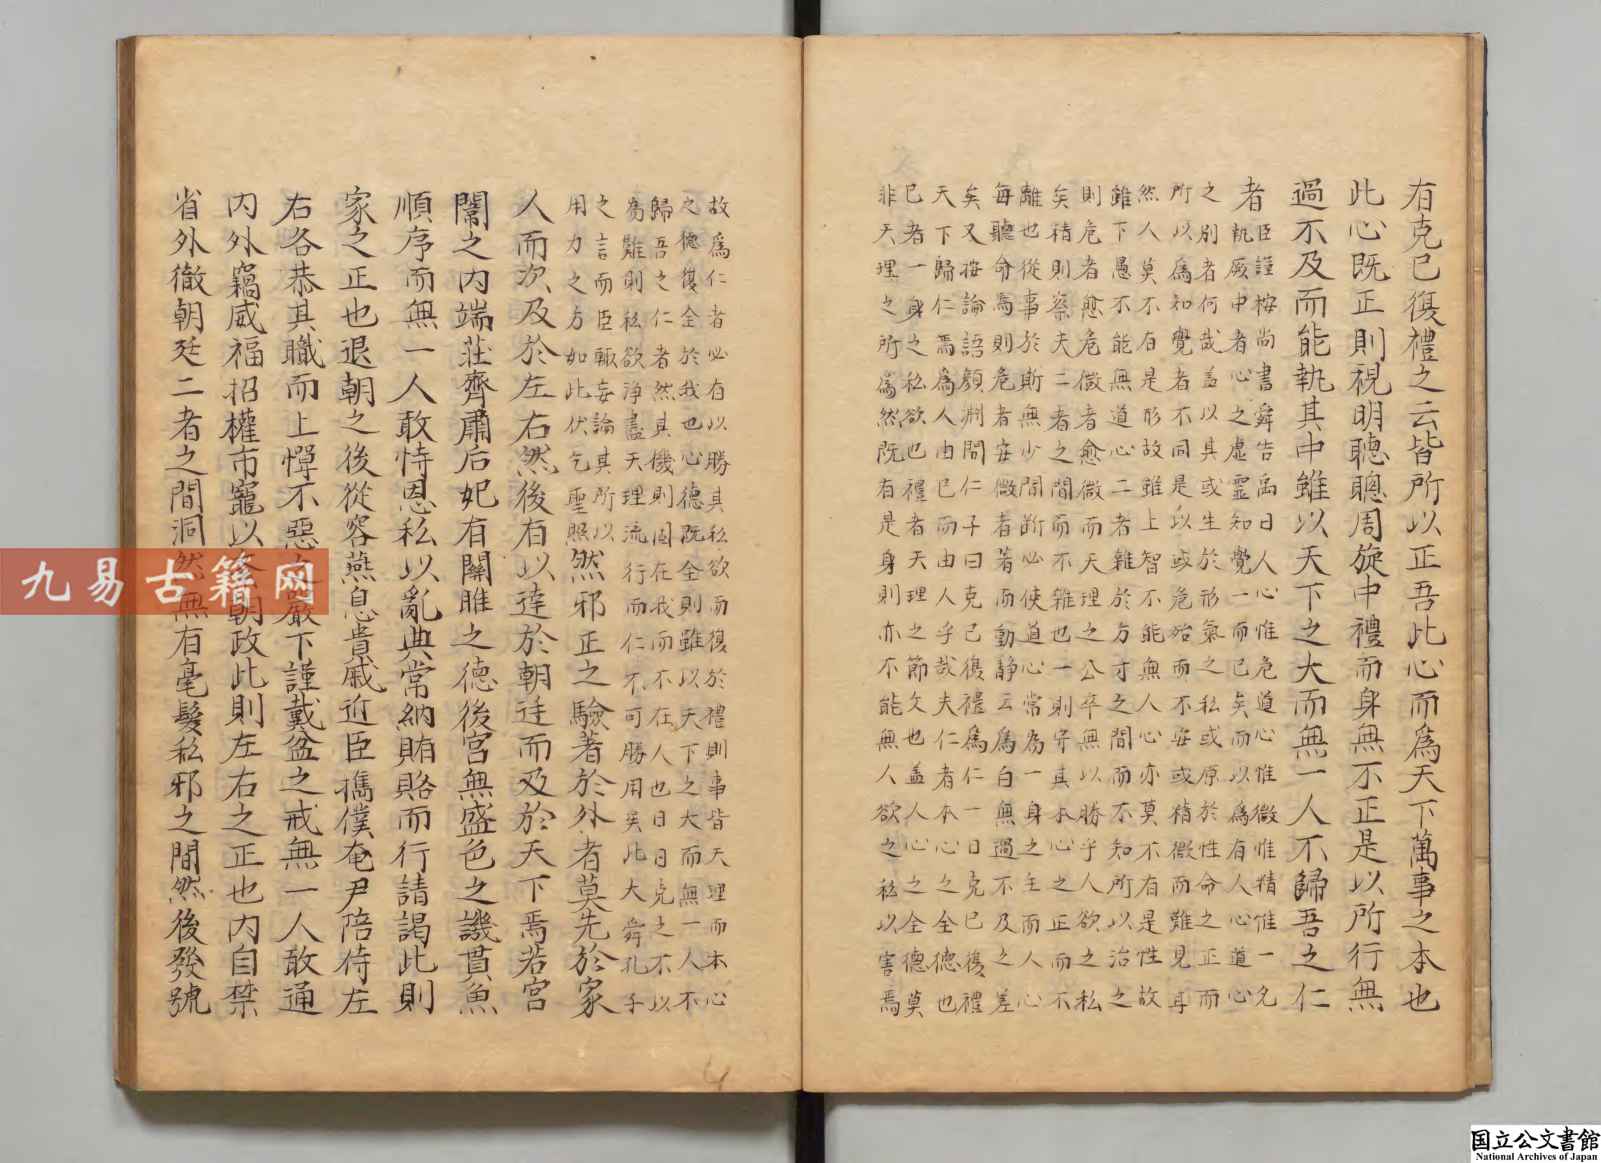 有克已復禮之云皆所以正吾此心而為天下萬事之本也
此心既正則視明聽聰周旋中禮而身無不正是以所行無
過不及而能執其中雖以天下之大而無一人不歸吾之仁
者
臣謹桉尚書舜告禹曰人心惟危道心惟微惟精惟一允
執厥中者心之虛靈知覺一而已矣而以為有人心道心
之別者何哉盖以其或生於形氣之私或原於性命之正而
所以為知覺者不同是以或危殆而不安或精微而難見耳
然人莫不有是形故雖上智不能無人心亦莫不有是性故
雖下愚不能無道心二者雜於方寸之間而不知所以治之
則危者愈危微者愈微而天理之公卒無以勝乎人欲之私
矣精則察夫二者之間而不雜也一則守其本心之正而不
離也從事於斯無少間断必使道心常為一身之主而人心
每聽命焉則危者安微者著而動静云為自無過不及之差
矣又按論語顏淵問仁子曰克已復禮為仁一日克已復禮
天下歸仁焉為仁由已而由人乎哉夫仁者本心之全德也
已者一身之私欲也禮者天理之節文也盖人心之全德莫
非天理之所為然既有是身則亦不能無人欲之私以害焉
故為仁者必有以勝其私欲而復於禮則事皆天理而本心
之德復全於我也心德既全則雖以天下之大而無一人不
歸吾之仁者然其機則固在我而不在人也日日克之不以
為難則私欲淨盡天理流行而仁不可勝用矣此大舜孔子
之言而臣輒妄論其所以
用力之方如此伏乞聖照
然邪正之驗著於外者莫先於家
人而次及於左右然後有以達於朝廷而及於天下焉若宮
闈之内端莊齊肅后妃有關雎之德後宮無盛色之譏貫魚
順序而無一人敢恃恩私以亂典常納賄賂而行請謁此則
家之正也退朝之後從容燕息貴戚近臣携僕奄尹陪侍左
右各恭其職而上憚不惡之嚴下謹戴盆之戒無一人敢通
内外竊威福招權市寵以紊朝政此則左右之正也内自禁
省外徹朝廷二者之間洞然無有毫髮私邪之間然後發號
九易古籍网
国立公文書館
National Archives of Japan